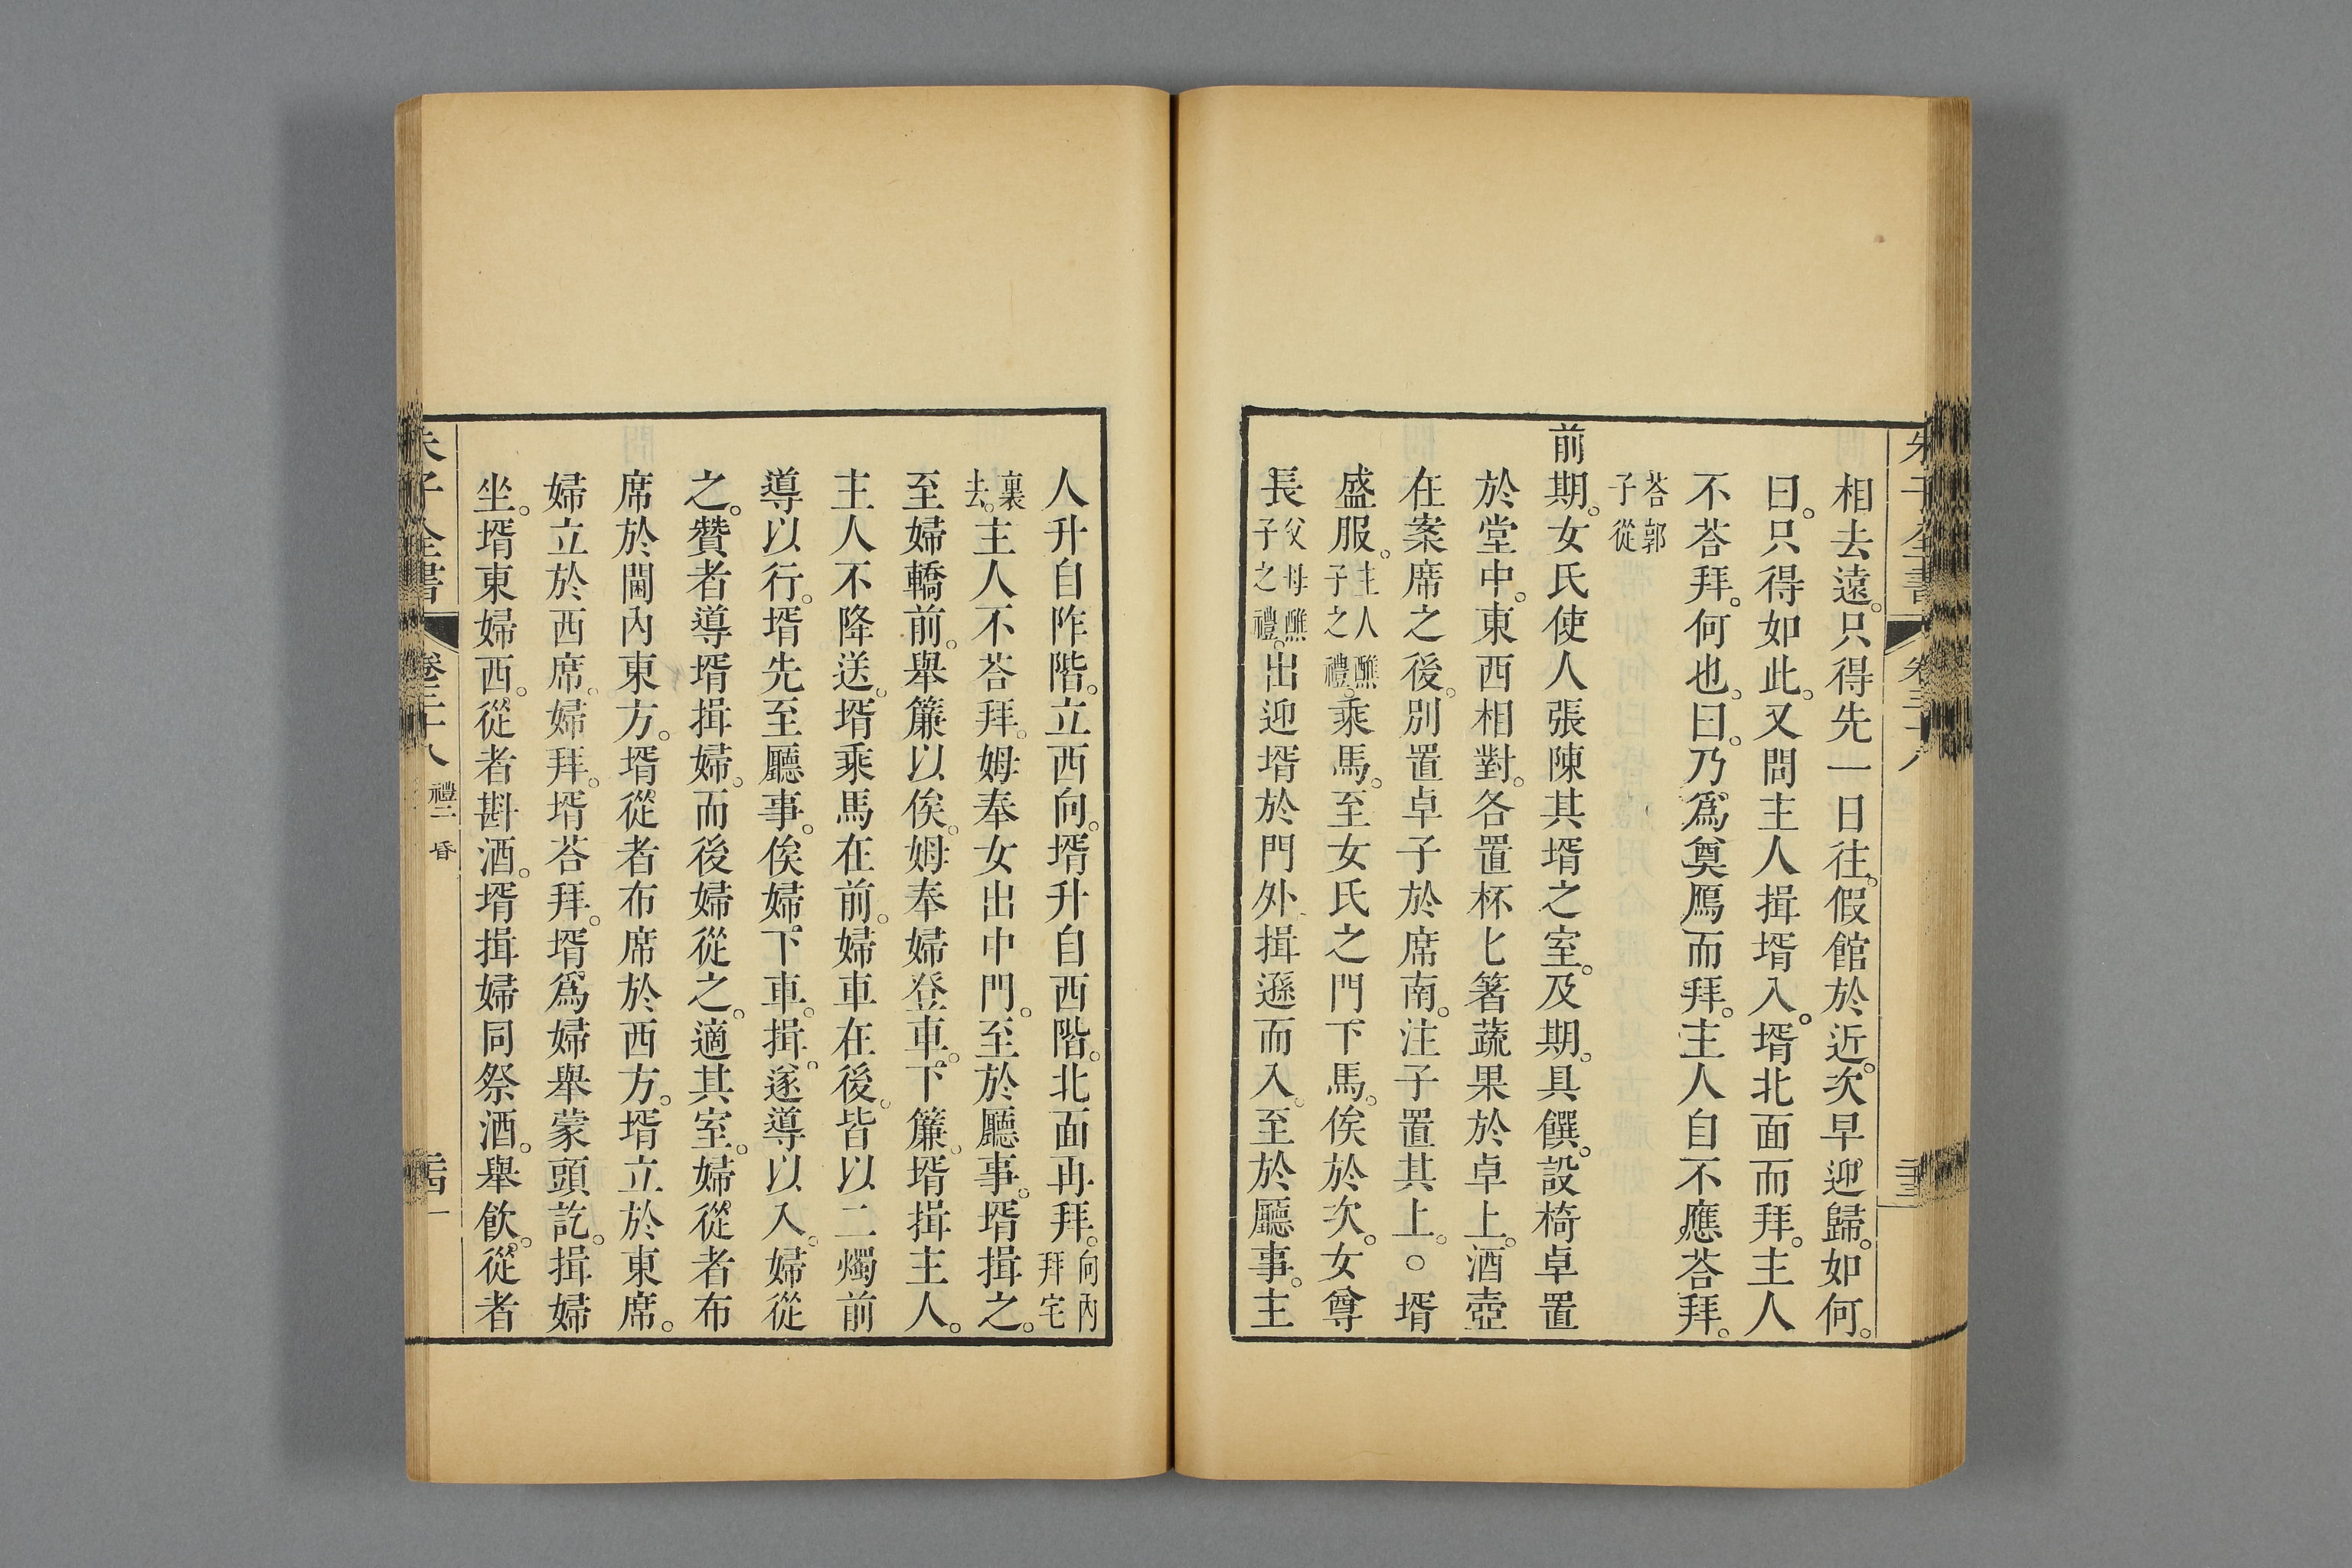 朱子全書 卷三十八 二十三
相去遠。只得先一日往。假館於近。次早迎歸。如何。
曰。只得如此。又問主人揖壻入。壻北面而拜。主人
不荅拜。何也。曰。乃爲奠鴈而拜。主人自不應荅拜。
荅郭
子從
前期。女氏使人張陳其壻之室。及期。具饌。設椅卓置
於堂中。東西相對。各置杯匕箸蔬果於卓上。酒壺
在案席之後。別置卓子於席南。注子置其上。○壻
盛服。主人醮子之禮。乘馬。至女氏之門下馬。俟於次。女尊
長父母醮子之禮。出迎壻於門外。揖遜而入。至於廳事。主
人升自阼階。立西向。壻升自西階。北面再拜。向內拜宅
裏去。主人不荅拜。姆奉女出中門。至於廳事。壻揖之。
至婦轎前。舉簾以俟。姆奉婦登車。下簾。壻揖主人。
主人不降送。壻乘馬在前。婦車在後。皆以二燭前
導以行。壻先至廳事。俟婦下車。揖。遂導以入。婦從
之。贊者導壻揖婦。而後婦從之。適其室。婦從者布
席於閫內東方。壻從者布席於西方。壻立於東席。
婦立於西席。婦拜。壻荅拜。壻爲婦舉蒙頭訖。揖婦
坐。壻東婦西。從者斟酒。壻揖婦同祭酒。舉飮。從者
朱子全書 卷三十八 禮二 昏 二十四